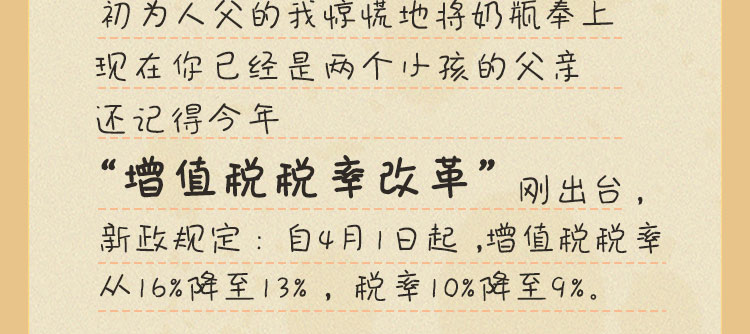 初为人父的我惊慌地将奶瓶奉上
现在你已经是两个小孩的父亲
还记得今年
“增值税税率改革”刚出台，
新政规定：自4月1日起,增值税税率
从16%降至13%，税率10%降至9%。